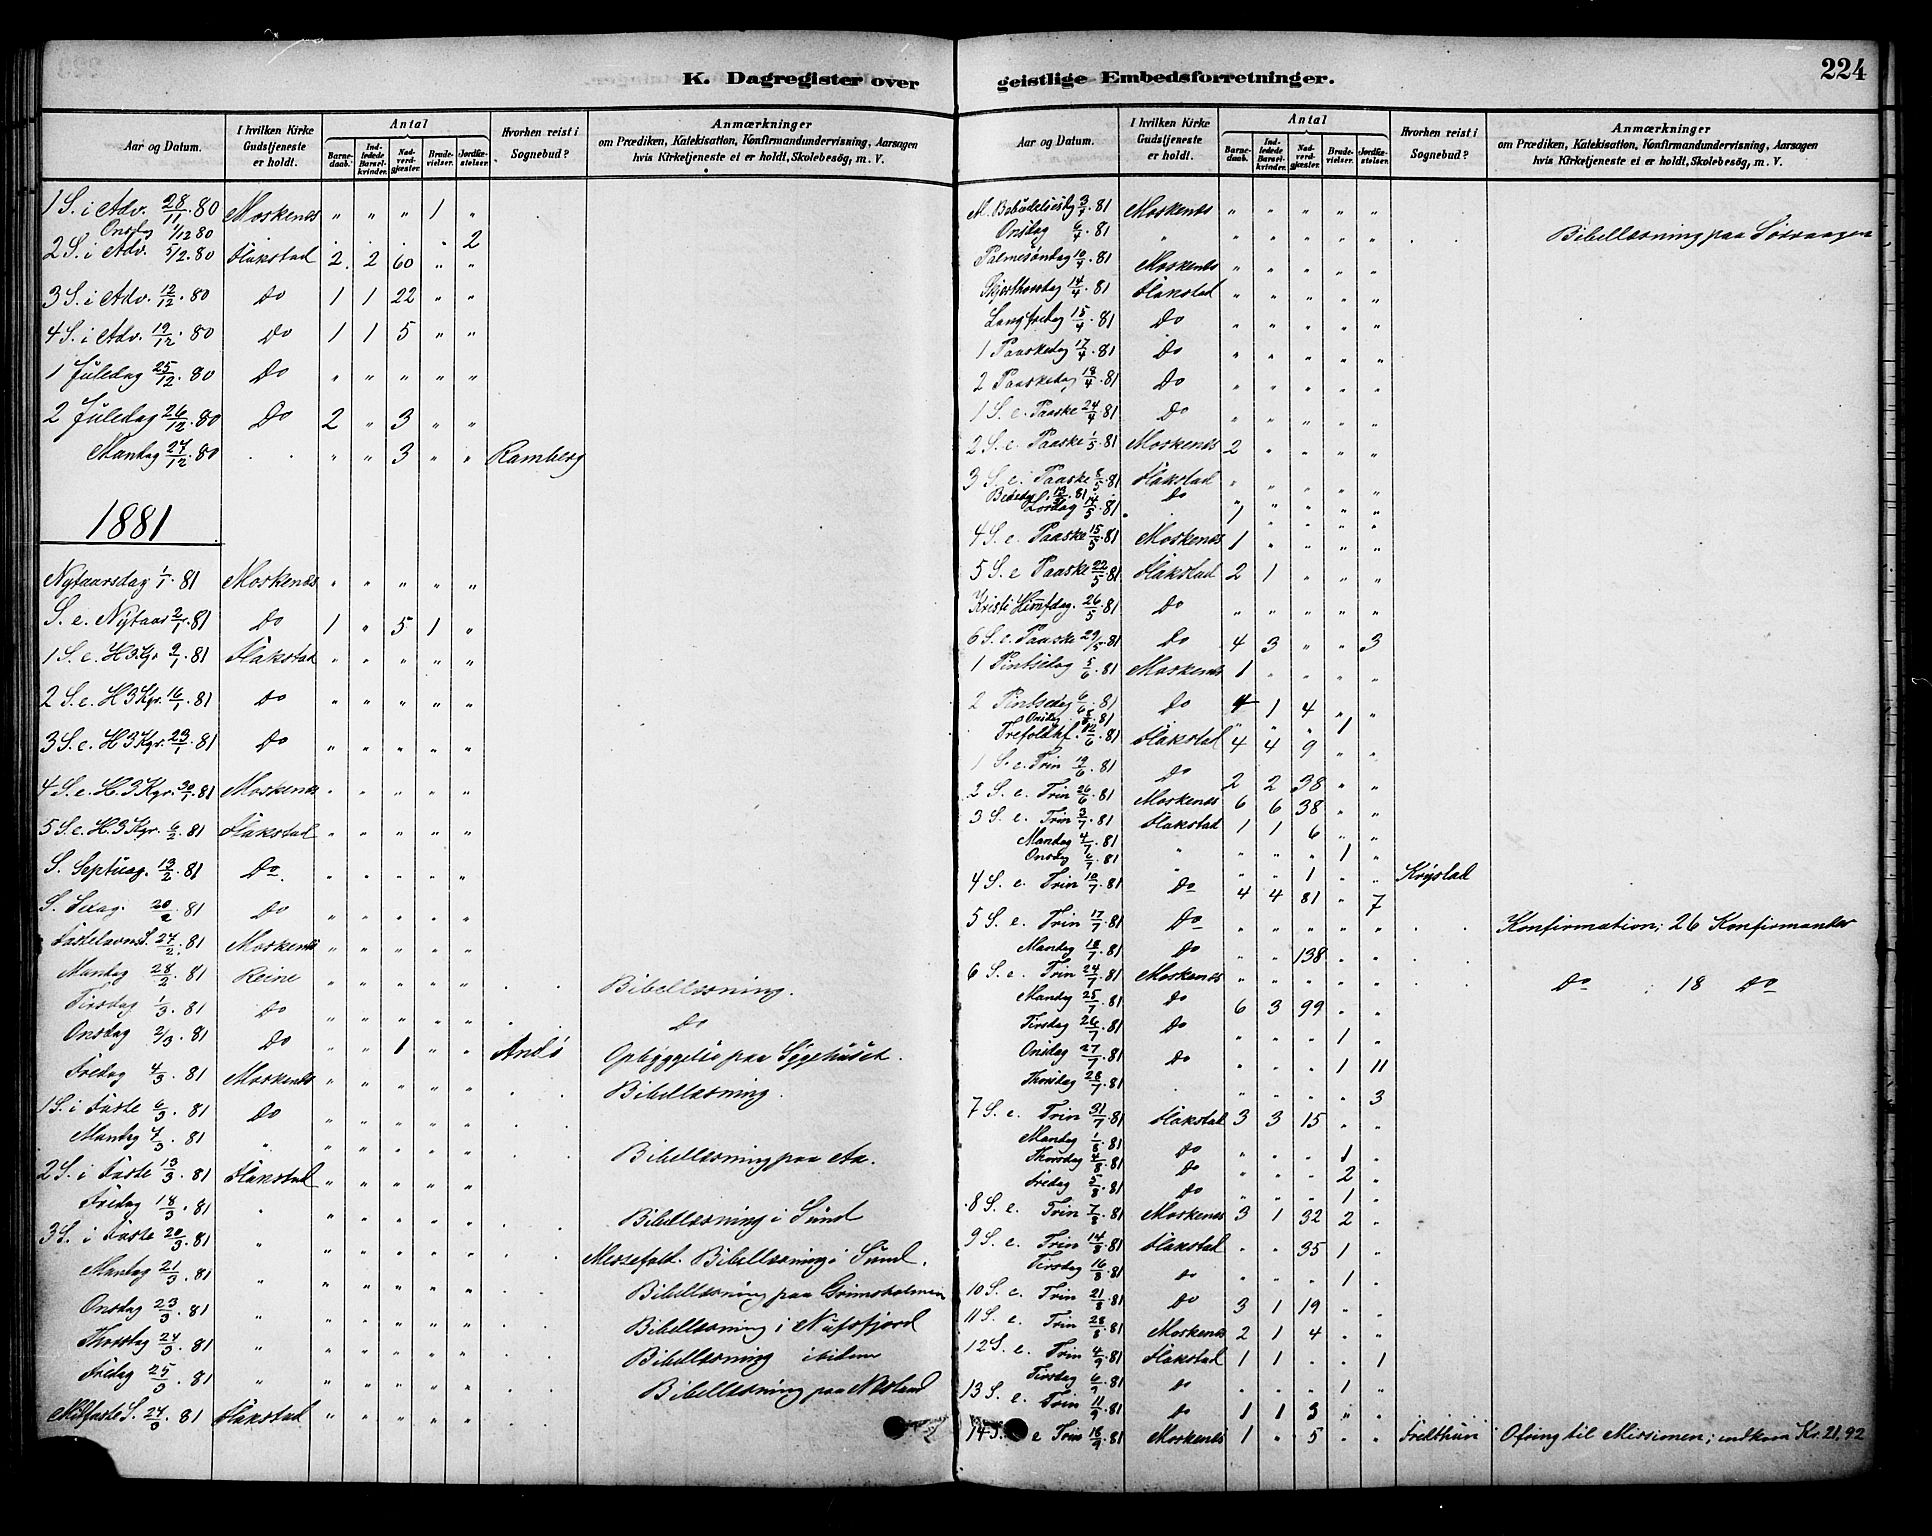 K. Dagregister over
Aar og Datum. I hvilken Kirke Gudstjeneste er holdt. Antal Barnedaab. Indledede Barselkvinder. Nadverdgjæster. Brudevielser. Jordfæstelser. Hvorhen reist i Sognebud? Anmærkninger om Prædiken, Katekisation, Konfirmandundervisning, Aarsagen hvis Kirketjeneste ei er holdt, Skolebesög, m. V.
1 S. i Adv. 28/11. 80 Moskenes " " " 1 "
Onsdag 1/12 80 . . . " 2
2 S. i Adv. 5/2. 80 Flakstad 2. 2 60 " "
3 S. i Adv. 12/12. 80 Do 1 1 22 " "
4 S. i Adv. 19/12. 80 Do 1 1 5 " "
1 Juledag 25/12. 80 Do " " " " "
2 Juledag 26/12. 80 Do 2 " 3 " "
Mandag 27/12. 80 . . " " 3 " " Ramberg
1881
Nytaarsdag 1/1. 81 Moskenes " " " " "
S. e. Nytaar 2/1. 81 Do 1 " 5 1 "
1 S. e. H 3 Kgr 9/1. 81 Flakstad " " " " "
2 S. e. H 3 Kgr. 16/1. 81 Do " " " " "
3 S. e. H 3 Kgr. 23/1. 81 Do " " " " "
4 S. e. H. 3 Kgr. 30/1. 81 Moskenes " " " " "
5 S. e. H. 3 Kgr. 6/2. 81 Flakstad " " " " "
S. Septuag. 13/2. 81 Do. " " " " "
S. Sexag. 20/2. 81 Do " " " " "
Fastelavns S. 27/2. 81 Moskenes " " " " "
Mandag 28/2. 81 Reine " " " " " . . Bibellæsning.
Tirsdag 1/3. 81 Do " " " " " . . Do
Onsdag 2/3. 81 Do " " 1 " " Andö Opbyggelse paa Sygehuset.
Fredag 4/3. 81 Moskenes " " " " " . . Bibellæsning.
1 S. i Faste 6/3. 81 Do " " " " "
Mandag 7/3. 81 " " " " " " . . Bibellæsning paa Aa.
2 S. i Faste 13/3. 81 Flakstad " " " " "
Fredag 18/3. 81 " " " " " " . . Bibellæsning i Sund
3 S. i Faste 20/3. 81 " " " " " " . . Messefald. Bibellæsning i Sund.
Mandag 21/3. 81 " " " " " " . . Bibellæsning paa Grimsholmen
Onsdag 23/3. 81 " " " " " " . . Bibellæsning i Nufsfjord
Thorsdag 24/3. 81 " " " " " " . . Bibellæsning ibidem
Fredag 25/3. 81 " " " " " " . . Bibellæsning paa Nesland
Midfaste S. 27/3. 81 Flakstad " " " " "
geistlige Embedsforretninger. 224
Aar og Datum. I hvilken Kirke Gudstjeneste er holdt. Antal Barnedaab. Indledede Barselkvinder. Nadverdgjæster. Brudevielser. Jordfæstelser. Hvorhen reist i Sognebud? Anmærkninger om Prædiken, Katekisation, Konfirmandundervisning, Aarsagen hvis Kirketjeneste ei er holdt, Skolebesög, m. V.
M. Bebudelsesdg 3/4. 81 Moskenes " " " " "
Onsdag 6/4. 81 " " " " " " . . Bibellæsning paa Sörvaagen
Palmesöndag 10/4. 81 Moskenes " " " " "
Skjærthorsdag 14/4. 81 Flakstad " " " " "
Langfredag 15/4. 81 Do " " " " "
1 Paaskedag 17/4. 81 Do " " " " "
2 Paaskedag 18/4. 81 Do " " " " "
1 S. e. Paaske 24/4. 81 Do " " " " "
2 S. e. Paaske 1/5. 81 Moskenes 2 " " " "
3 S. e. Paaske 8/5. 81 Flakstad " " " " "
Bededag 13/5. 81 Do " " " " "
Lördag 14/5. 81 . 1 " " " "
4 S. e. Paaske 15/5. 81 Moskenes 1 " " " "
5 S. e Paaske 22/5. 81 Flakstad 2 1 " " "
Kristi Himfdag. 26/5. 81 Do " " " " "
6 S. e. Paaske 29/5. 81 Do 4 3 " " 3
1 Pintsedag 5/6. 81 Moskenes 1 " " " "
2 Pintsedag 6/6. 81 Do 4 1 4 " "
Onsdag 8/6. 81 " " " 1
Trefoldhf. 12/6. 81 Flakstad 4 4 9 " "
1 S. e. Trin 19/6. 81 Do 2 2 38 " "
2 S. e. Trin 26/6. 81 Moskenes 6 6 38 " "
3 S. e. Trin 3/7. 81 Flakstad 1 1 6 " "
Mandag 4/7. 81 " " " " 1 "
Onsdag 6/7. 81 " " " 1 " " Krystad
4 S. e. Trin 10/7. 81 Do 4 4 81 " 7
5 S. e. Trin 17/7. 81 Do " " " " " . . Konfirmation; 26 Konfirmander
Mandag 18/7. 81 Do " " 138 " "
6 S. e. Trin 24/7. 81 Moskenes " " " " " . . Do : 18 Do
Mandag 25/7. 81 Do 6 3 99 " "
Tirsdag 26/7. 81 Do " " " 1 "
Onsdag 27/7. 81 Do " " " 1 11
Thorsdag 28/7. 81 . " " " " 3
7 S. e. Trin 31/7. 81 Flakstad 3 3 15 " "
Mandag 1/8. 81 Do " " " 1 "
Thorsdag 4/8. 81 Do " " " 2 "
Fredag 5/8. 81 Do " " " 1 "
8 S. e. Trin 7/8. 81 Moskenes 3 1 32 2 "
9 S. e. Trin 14/8. 81 Flakstad " " 35 1 "
Tirsdag 16/8. 81 Do " " " 1 "
10 S. e. Trin 21/8. 81 Do 3 1 19 " "
11 S. e. Trin 28/8. 81 Moskenes 2 1 4 " "
12 S. e. Trin 4/9. 81 Flakstad 1 1 . . 1
Tirsdag 6/9. 81 Do " " " 1 "
13 S. e. Trin 11/9. 81 Do 1 1 3 " "
14 S. e Trin 18/9. 81 Moskenes 1 " 5 " " Ofring til Missionen; indkom Kr. 21,92